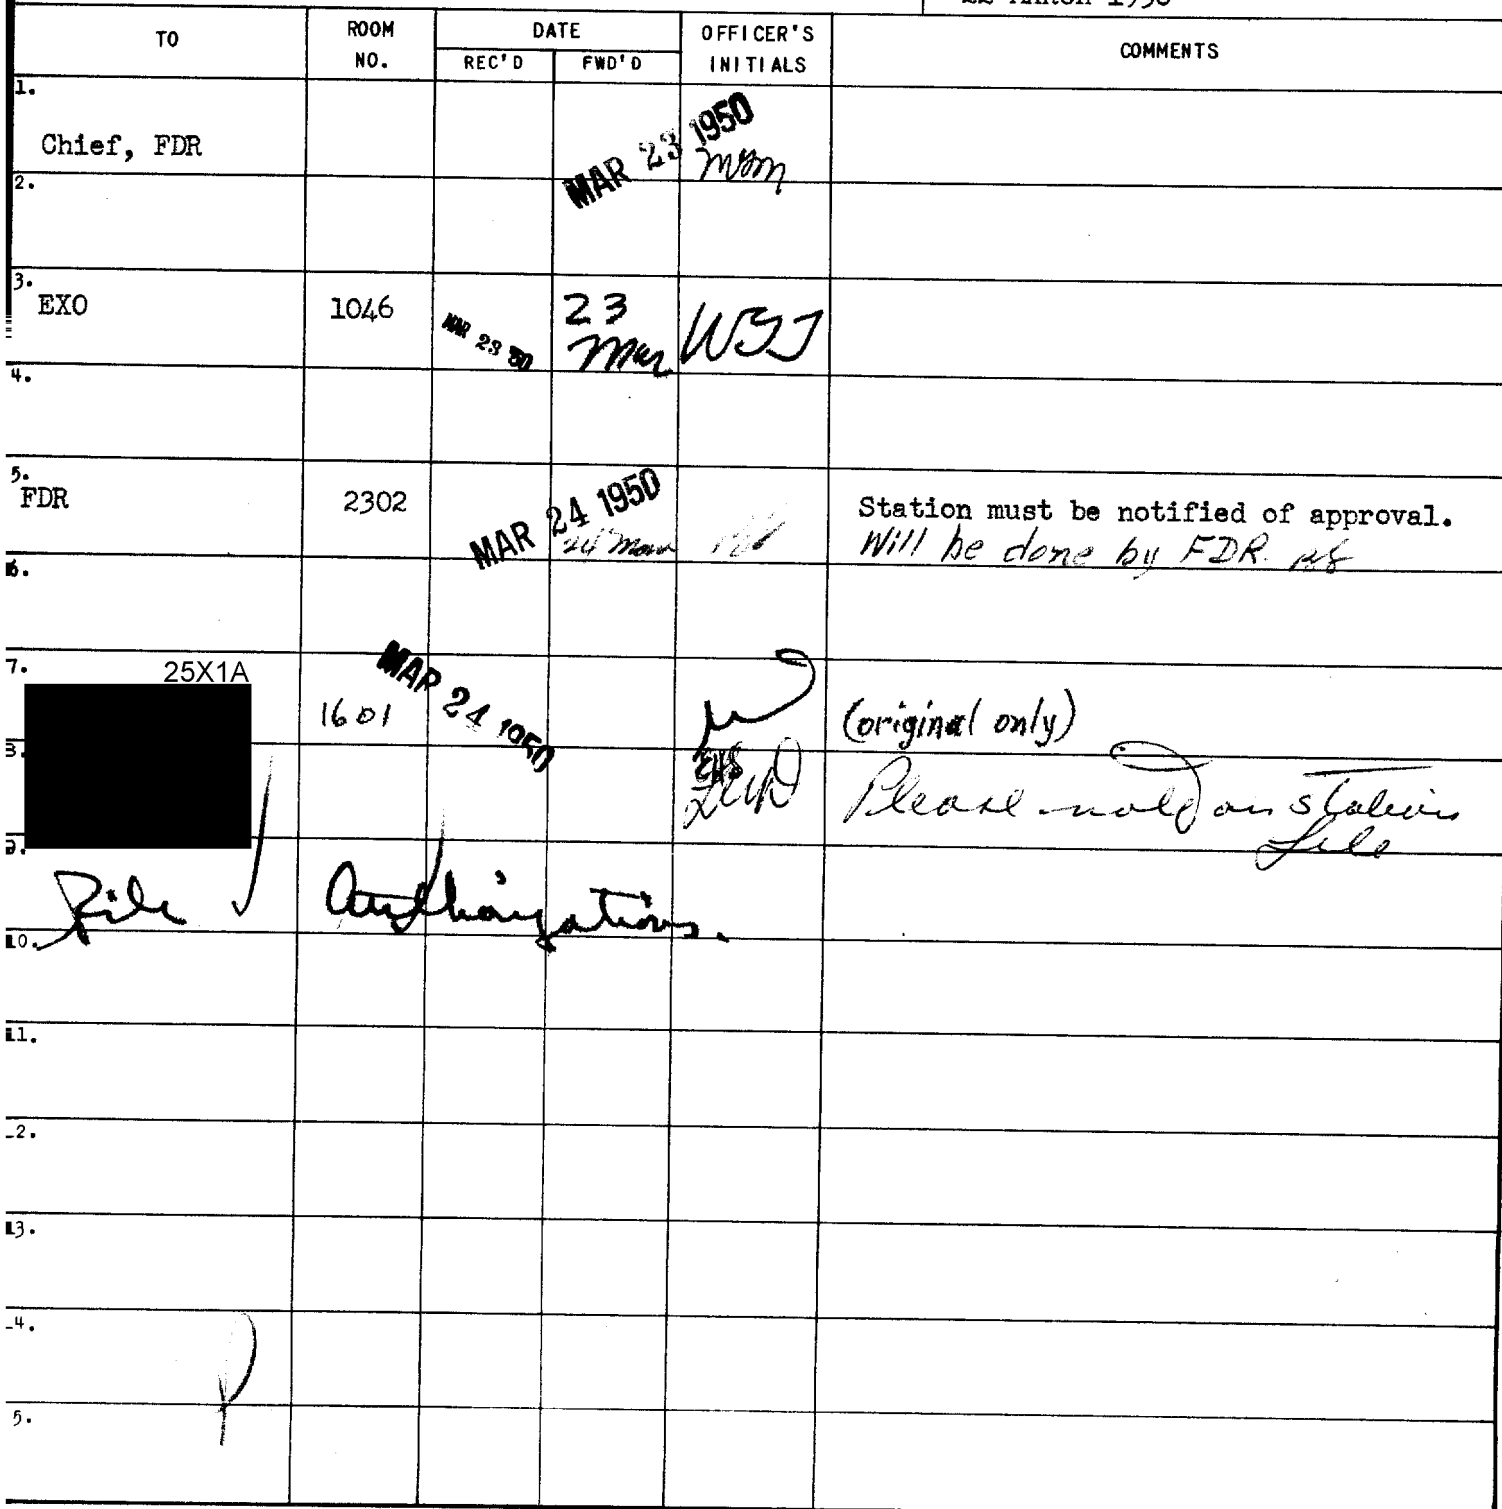 TO
ROOM
NO.
DATE
REC'D
FWD'D
OFFICER'S
INITIALS
COMMENTS
1.
Chief, FDR
MAR 23 1950
2.
3.
EXO
1046
MAR 23 50
23
Mar
4.
5.
FDR
2302
MAR 24 1950
24 Mar
Station must be notified of approval.
Will be done by FDR.
6.
7.
25X1A
1601
MAR 24 1950
(original only)
Please note on station
file
File
Authorizations.
10.
11.
13.